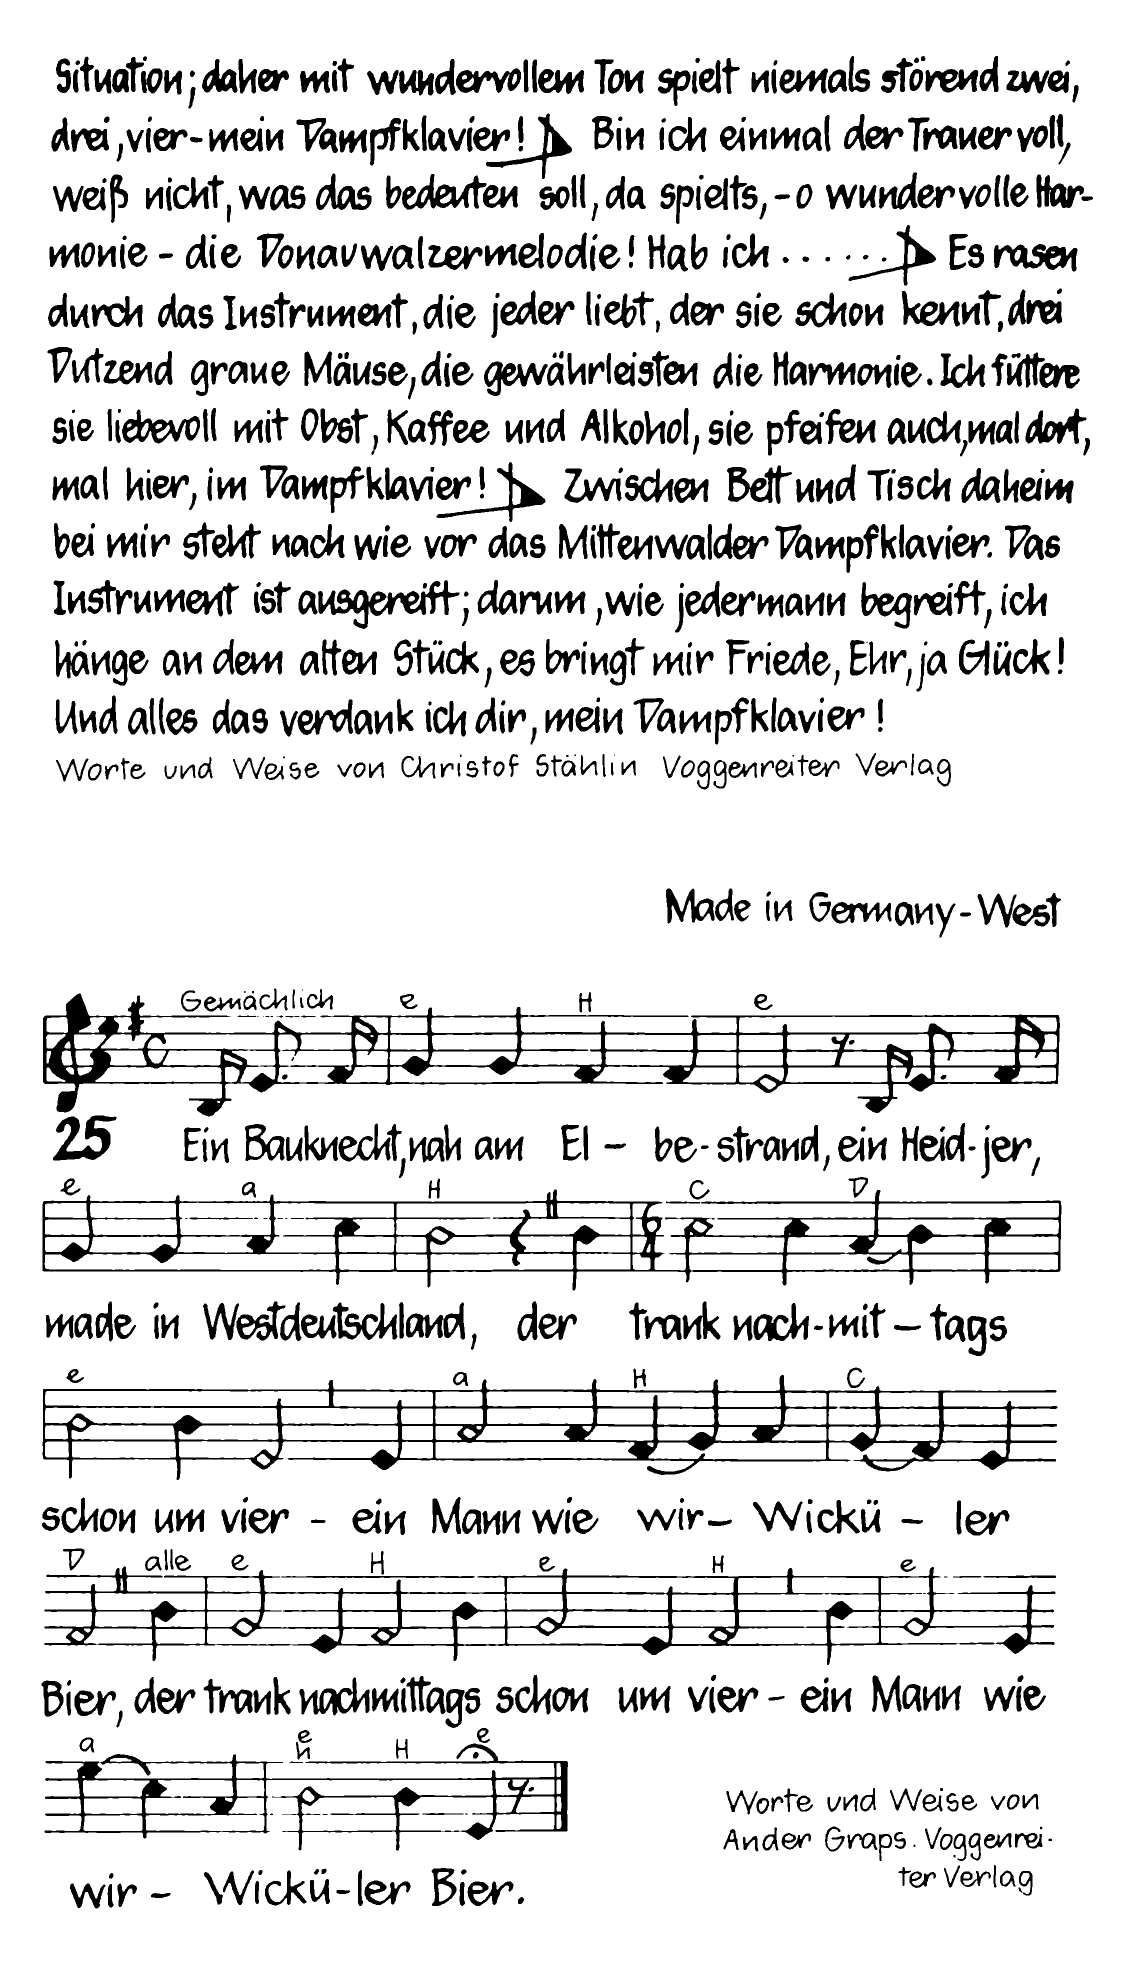 Situation; daher mit wundervollem Ton spielt niemals störend zwei,
drei, vier - mein Dampfklavier! Bin ich einmal der Trauer voll,
weiß nicht, was das bedeuten soll, da spielts, - o wundervolle Har-
monie - die Donauwalzermelodie! Hab ich ...... Es rasen
durch das Instrument, die jeder liebt, der sie schon kennt, drei
Dutzend graue Mäuse, die gewährleisten die Harmonie. Ich füttere
sie liebevoll mit Obst, Kaffee und Alkohol, sie pfeifen auch, mal dort,
mal hier, im Dampfklavier! Zwischen Bett und Tisch daheim
bei mir steht nach wie vor das Mittenwalder Dampfklavier. Das
Instrument ist ausgereift; darum, wie jedermann begreift, ich
hänge an dem alten Stück, es bringt mir Friede, Ehr, ja Glück!
Und alles das verdank ich dir, mein Dampfklavier!
Worte und Weise von Christof Stählin Voggenreiter Verlag
Made in Germany - West
Gemächlich e H e
C
25 Ein Bauknecht, nah am El - be - strand, ein Heid - jer,
e a H C D
6 4
made in Westdeutschland, der trank nach - mit - tags
e a H C
schon um vier - ein Mann wie wir - Wickü - ler
D alle e H e H e
Bier, der trank nachmittags schon um vier - ein Mann wie
a e H H e
wir - Wickü - ler Bier.
Worte und Weise von
Ander Graps. Voggenrei-
ter Verlag